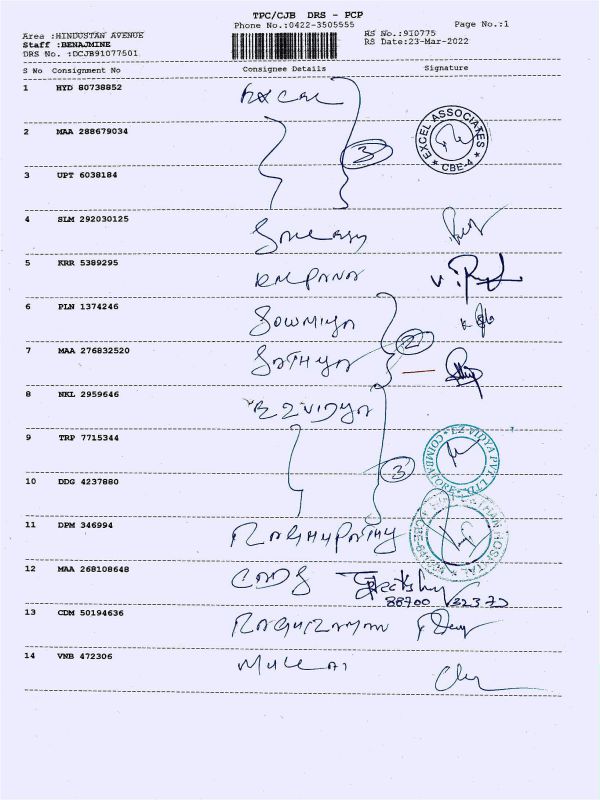 TPC/CJB DRS - PCP
Phone No.:0422-3505555
Page No.:1
Area :HINDUSTAN AVENUE
RS No.:910775
Staff :BENAJMINE
RS Date:23-Mar-2022
DRS No. :DCJB91077501
S No Consignment No Consignee Details Signature
1 HYD 80738852 EXCEL
EXCEL ASSOCIATES
★ CBE-4 ★
2 MAA 288679034
3
3 UPT 6038184
4 SLM 292030125
5 KRR 5389295 KALPANA
6 PLN 1374246 SOWMIYA
7 MAA 276832520 SATHYA
2
8 NKL 2959646 EZ VIDYA
9 TRP 7715344
EZ VIDYA PVT. LTD.
COIMBATORE
10 DDG 4237880
3
11 DPM 346994 RAGHUPATHY
HOSPITAL
12 MAA 268108648 CODS
88700 32372
13 CDM 50194636 RAGURAMAN
14 VNB 472306 MULLAI